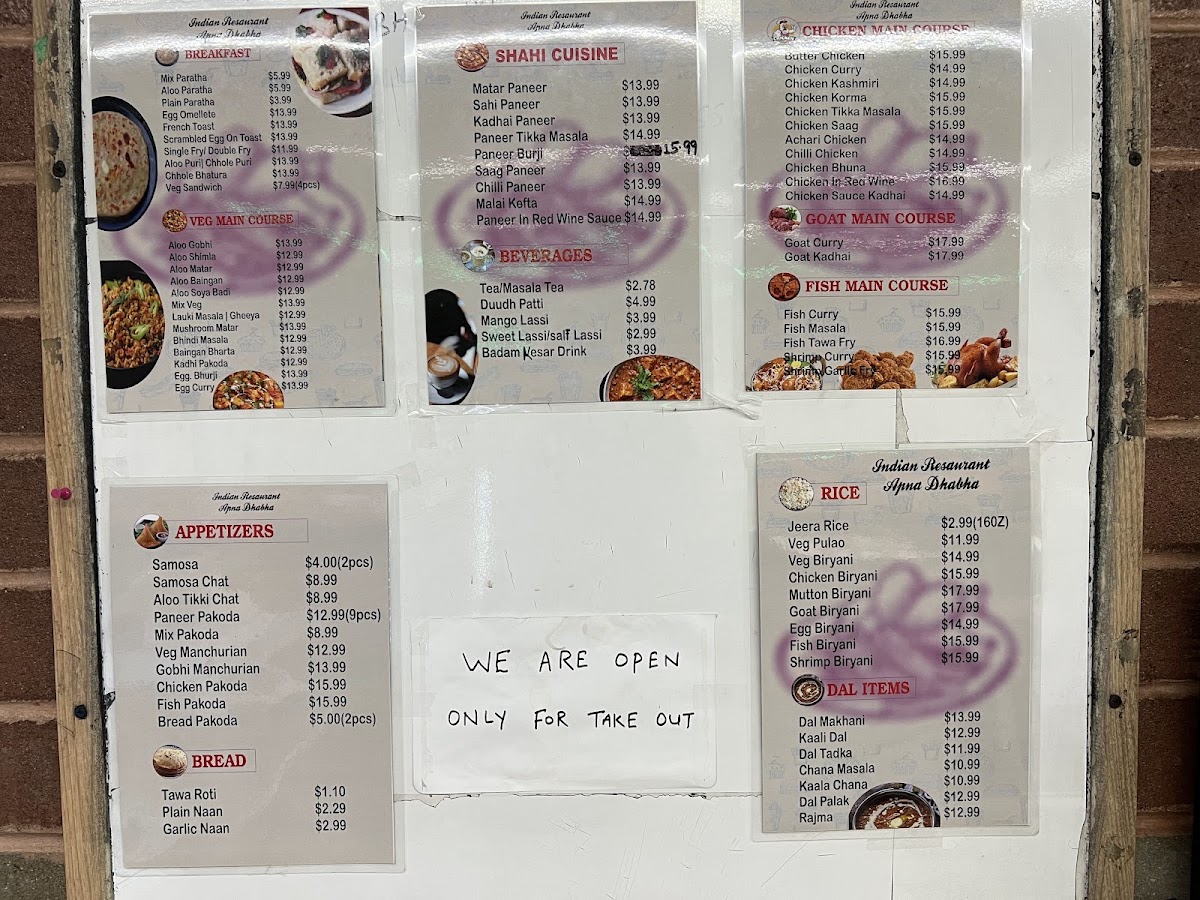 Indian Resaurant
Apna Dhabha
BREAKFAST
Mix Paratha $5.99
Aloo Paratha $5.99
Plain Paratha $3.99
Egg Omellete $13.99
French Toast $13.99
Scrambled Egg On Toast $13.99
Single Fry/ Double Fry $11.99
Aloo Puri| Chhole Puri $13.99
Chhole Bhatura $13.99
Veg Sandwich $7.99(4pcs)
VEG MAIN COURSE
Aloo Gobhi $13.99
Aloo Shimla $12.99
Aloo Matar $12.99
Aloo Baingan $12.99
Aloo Soya Badi $12.99
Mix Veg $13.99
Lauki Masala | Gheeya $12.99
Mushroom Matar $13.99
Bhindi Masala $12.99
Baingan Bharta $12.99
Kadhi Pakoda $12.99
Egg. Bhurji $13.99
Egg Curry $13.99
Indian Resaurant
Apna Dhabha
SHAHI CUISINE
Matar Paneer $13.99
Sahi Paneer $13.99
Kadhai Paneer $13.99
Paneer Tikka Masala $14.99
Paneer Burji 15.99
Saag Paneer $13.99
Chilli Paneer $13.99
Malai Kofta $14.99
Paneer In Red Wine Sauce $14.99
BEVERAGES
Tea/Masala Tea $2.78
Duudh Patti $4.99
Mango Lassi $3.99
Sweet Lassi/salt Lassi $2.99
Badam Kesar Drink $3.99
Indian Resaurant
Apna Dhabha
CHICKEN MAIN COURSE
Butter Chicken $15.99
Chicken Curry $14.99
Chicken Kashmiri $14.99
Chicken Korma $15.99
Chicken Tikka Masala $15.99
Chicken Saag $15.99
Achari Chicken $14.99
Chilli Chicken $14.99
Chicken Bhuna $15.99
Chicken In Red Wine $16.99
Chicken Sauce Kadhai $14.99
GOAT MAIN COURSE
Goat Curry $17.99
Goat Kadhai $17.99
FISH MAIN COURSE
Fish Curry $15.99
Fish Masala $15.99
Fish Tawa Fry $16.99
Shrimp Curry $15.99
Shrimp Garlic Fry $15.99
Indian Resaurant
Apna Dhabha
APPETIZERS
Samosa $4.00(2pcs)
Samosa Chat $8.99
Aloo Tikki Chat $8.99
Paneer Pakoda $12.99(9pcs)
Mix Pakoda $8.99
Veg Manchurian $12.99
Gobhi Manchurian $13.99
Chicken Pakoda $15.99
Fish Pakoda $15.99
Bread Pakoda $5.00(2pcs)
BREAD
Tawa Roti $1.10
Plain Naan $2.29
Garlic Naan $2.99
WE ARE OPEN
ONLY FOR TAKE OUT
Indian Resaurant
Apna Dhabha
RICE
Jeera Rice $2.99(16OZ)
Veg Pulao $11.99
Veg Biryani $14.99
Chicken Biryani $15.99
Mutton Biryani $17.99
Goat Biryani $17.99
Egg Biryani $14.99
Fish Biryani $15.99
Shrimp Biryani $15.99
DAL ITEMS
Dal Makhani $13.99
Kaali Dal $12.99
Dal Tadka $11.99
Chana Masala $10.99
Kaala Chana $10.99
Dal Palak $12.99
Rajma $12.99